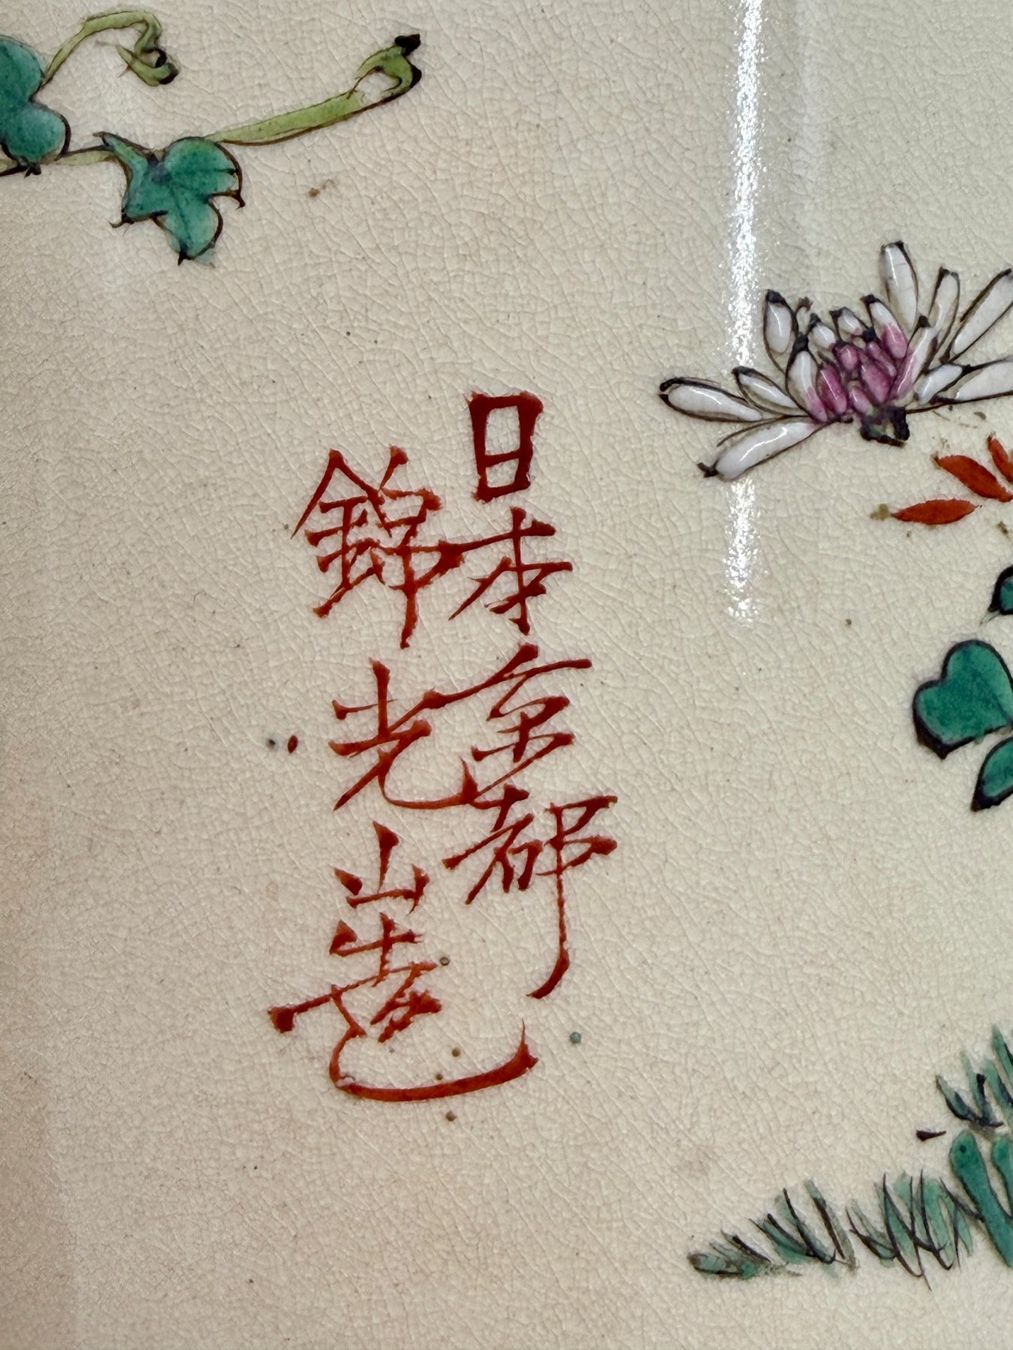 日本京都
錦光山造